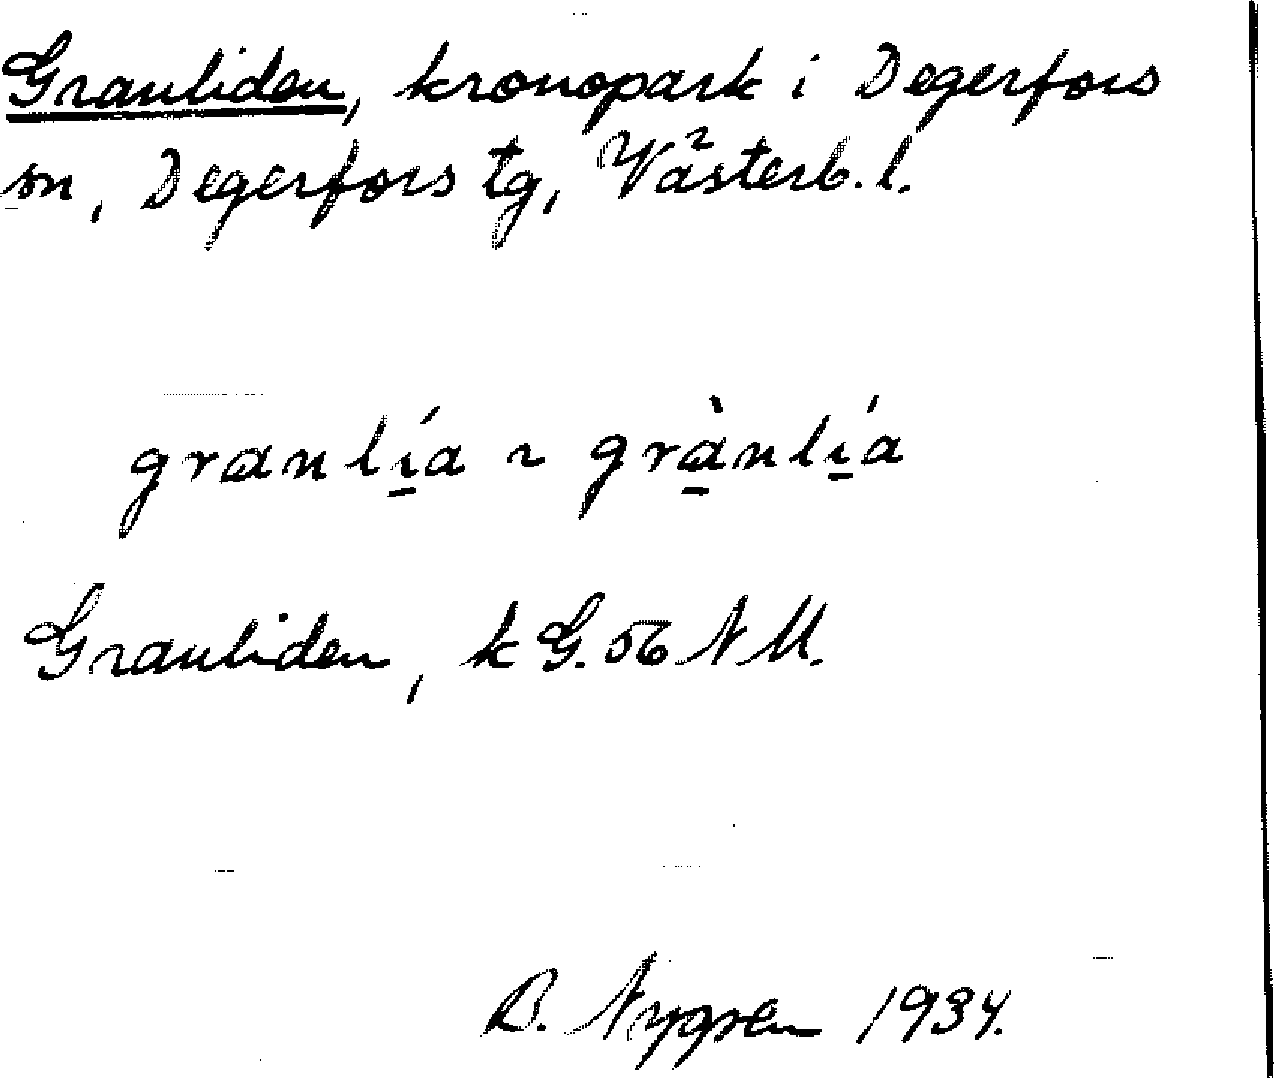 Granliden, kronopark i Degerfors
sn, Degerfors tg, Västerb. l.
granlía ~ grànlía
Granliden, k G. 56 NM.
B. Nygren 1934.